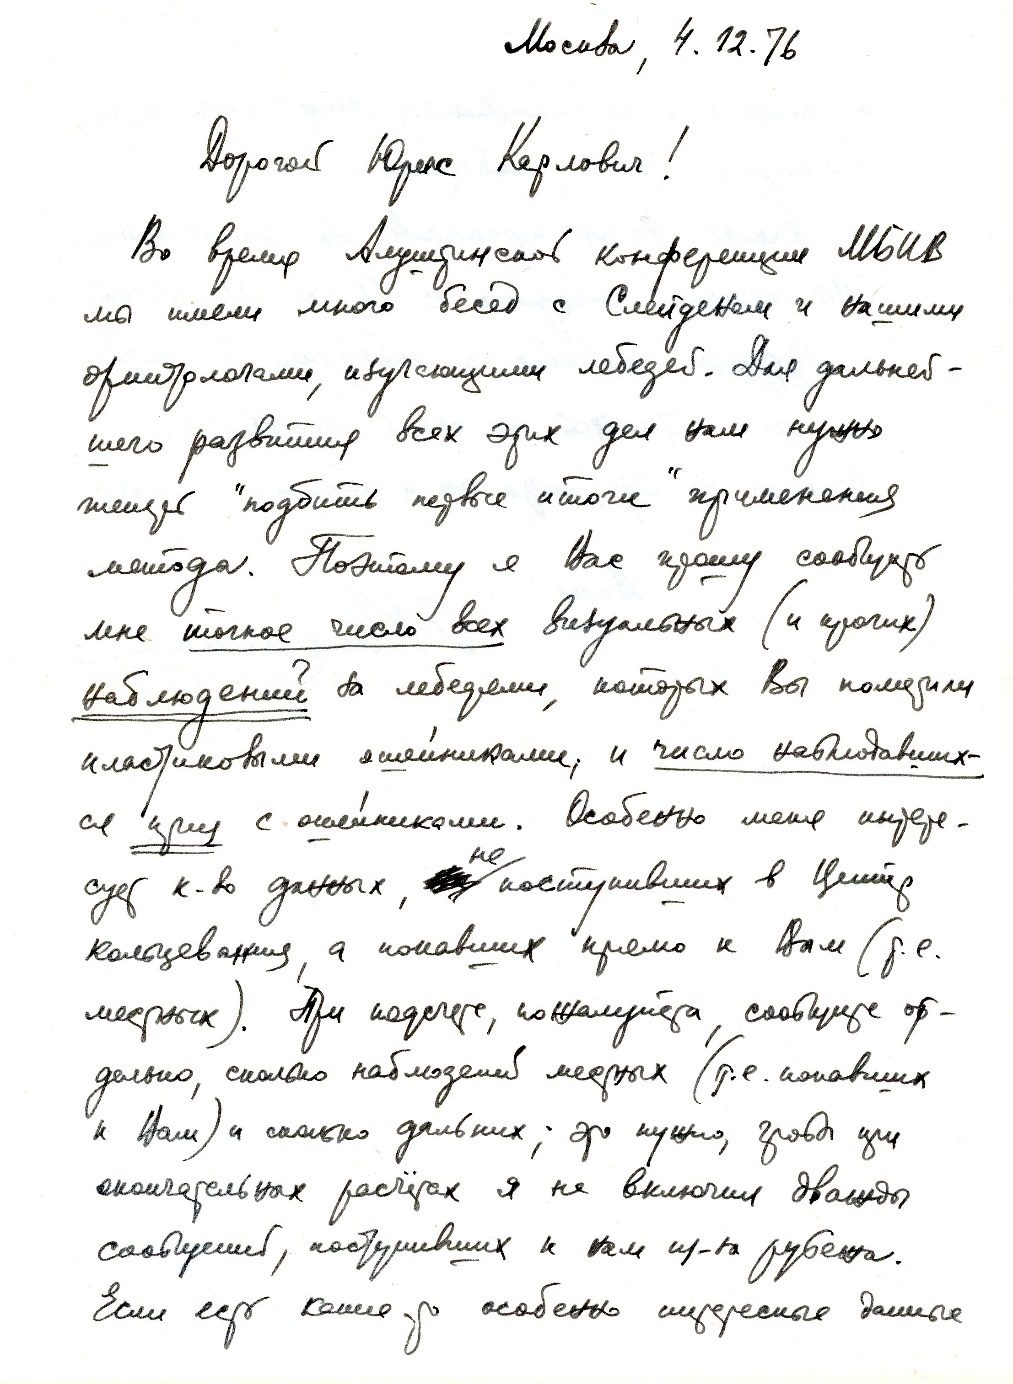 Москва, 4.12.76
Дорогой Юрис Карлович!
Во время Алуштинской конференции МБИВ
мы имели много бесед с Слейденом и нашими
орнитологами, изучающими лебедей. Для дальней-
шего развития всех этих дел нам нужно
"подбить первые итоги" применения
метода. Поэтому я Вас прошу сообщить
мне точное число всех визуальных (и прочих)
наблюдений за лебедями, которых Вы пометили
пластиковыми ошейниками, и число наблюдавших-
ся птиц с ошейниками. Особенно меня интере-
сует к-во данных, не поступивших в Центр
кольцевания, а попавших прямо к Вам (т.е.
местных). При подсчете, пожалуйста, сообщите от-
дельно, сколько наблюдений местных (т.е. попавших
к Вам) и сколько дальних; это нужно, чтобы при
окончательных расчётах я не включил дважды
сообщений, поступивших к нам из-за рубежа.
Если есть какие-то особенно интересные данные